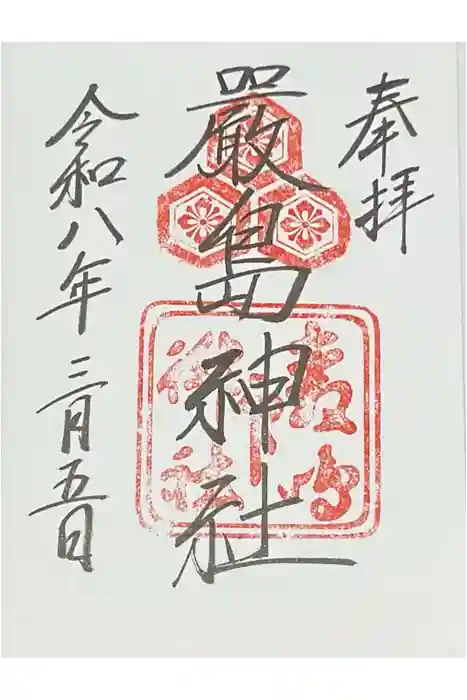 奉拝
嚴島神社
令和八年三月五日